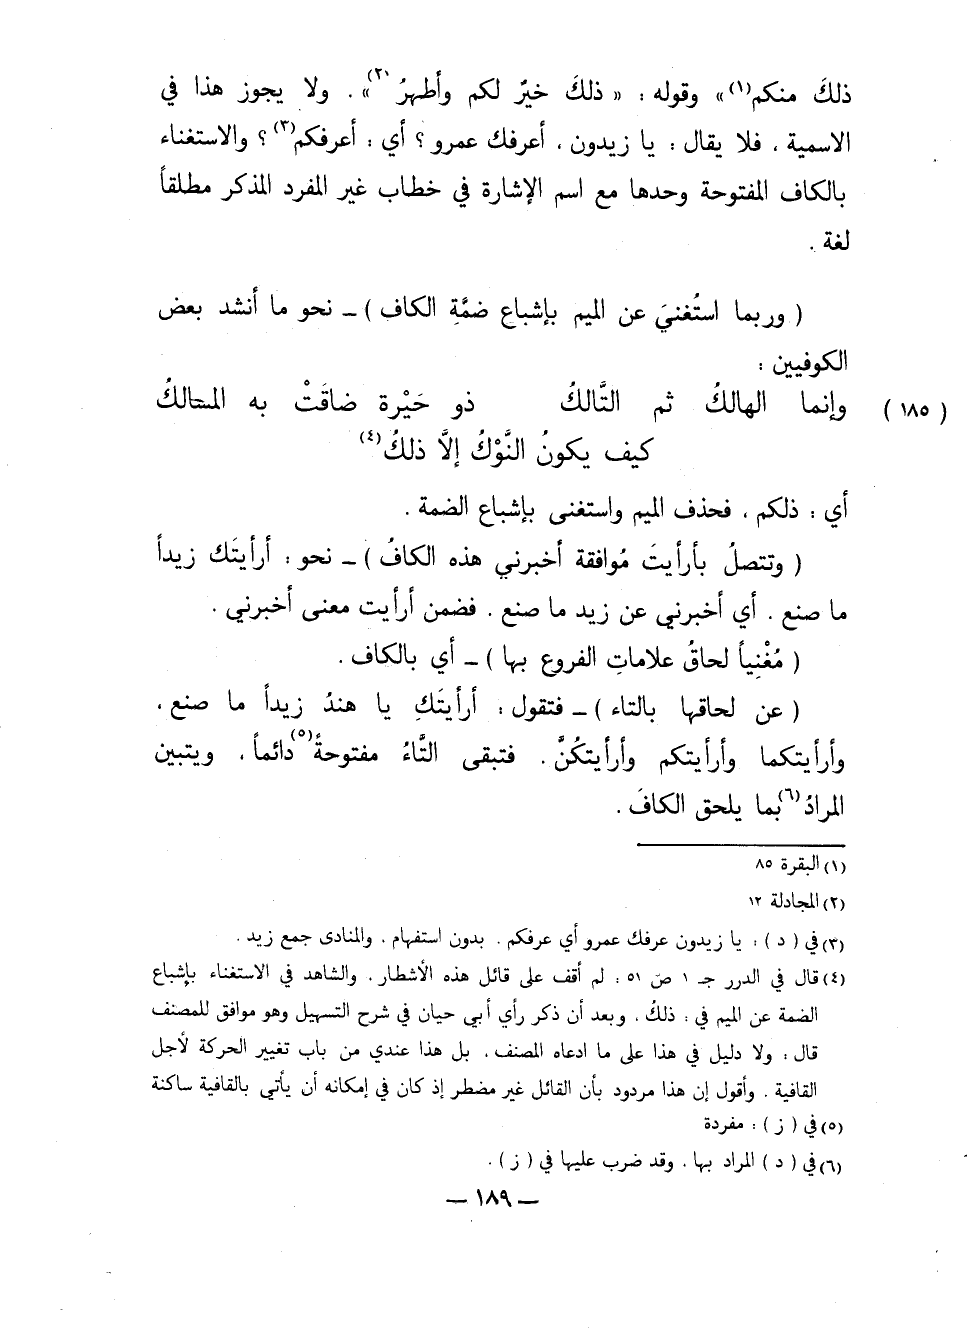 ذلكَ منكم(١)» وقوله : « ذلكَ خيرٌ لكم وأطهرُ(٢)» . ولا يجوز هذا في
الاسمية ، فلا يقال : يا زيدون ، أعرفك عمرو ؟ أي : أعرفكم(٣) ؟ والاستغناء
بالكاف المفتوحة وحدها مع اسم الإشارة في خطاب غير المفرد المذكر مطلقاً
لغة .
( وربما استُغنيَ عن الميم بإشباع ضمَّةِ الكاف ) ــ نحو ما أنشد بعض
الكوفيين :
( ١٨٥ ) وإنما الهالكُ ثم التَّالكُ ذو حَيْرة ضاقَتْ به المسالكُ
كيف يكونُ النَّوْكُ إلاَّ ذلكُ(٤)
أي : ذلكم ، فحذف الميم واستغنى بإشباع الضمة .
( وتتصلُ بأرأيتَ مُوافقة أخبرني هذه الكافُ ) ــ نحو : أرأيتَك زيداً
ما صنع . أي أخبرني عن زيد ما صنع . فضمن أرأيت معنى أخبرني .
( مُغْنِياً لحاقُ علاماتِ الفروع بها ) ــ أي بالكاف .
( عن لحاقها بالتاء ) ــ فتقول : أرأيتَكِ يا هندُ زيداً ما صنع ،
وأرأيتكما وأرأيتكم وأرأيتكُنَّ . فتبقى التَّاءُ مفتوحةً(٥) دائماً ، ويتبين
المرادُ(٦) بما يلحق الكافَ .
(١) البقرة ٨٥
(٢) المجادلة ١٢
(٣) في ( د ) : يا زيدون عرفك عمرو أي عرفكم . بدون استفهام . والمنادى جمع زيد .
(٤) قال في الدرر جـ ١ ص ٥١ : لم أقف على قائل هذه الأشطار . والشاهد في الاستغناء بإشباع
الضمة عن الميم في : ذلكُ . وبعد أن ذكر رأي أبي حيان في شرح التسهيل وهو موافق للمصنف
قال : ولا دليل في هذا على ما ادعاه المصنف ، بل هذا عندي من باب تغيير الحركة لأجل
القافية . وأقول إن هذا مردود بأن القائل غير مضطر إذ كان في إمكانه أن يأتي بالقافية ساكنة
(٥) في ( ز ) : مفردة
(٦) في ( د ) المراد بها . وقد ضرب عليها في ( ز ) .
ــ ١٨٩ ــ